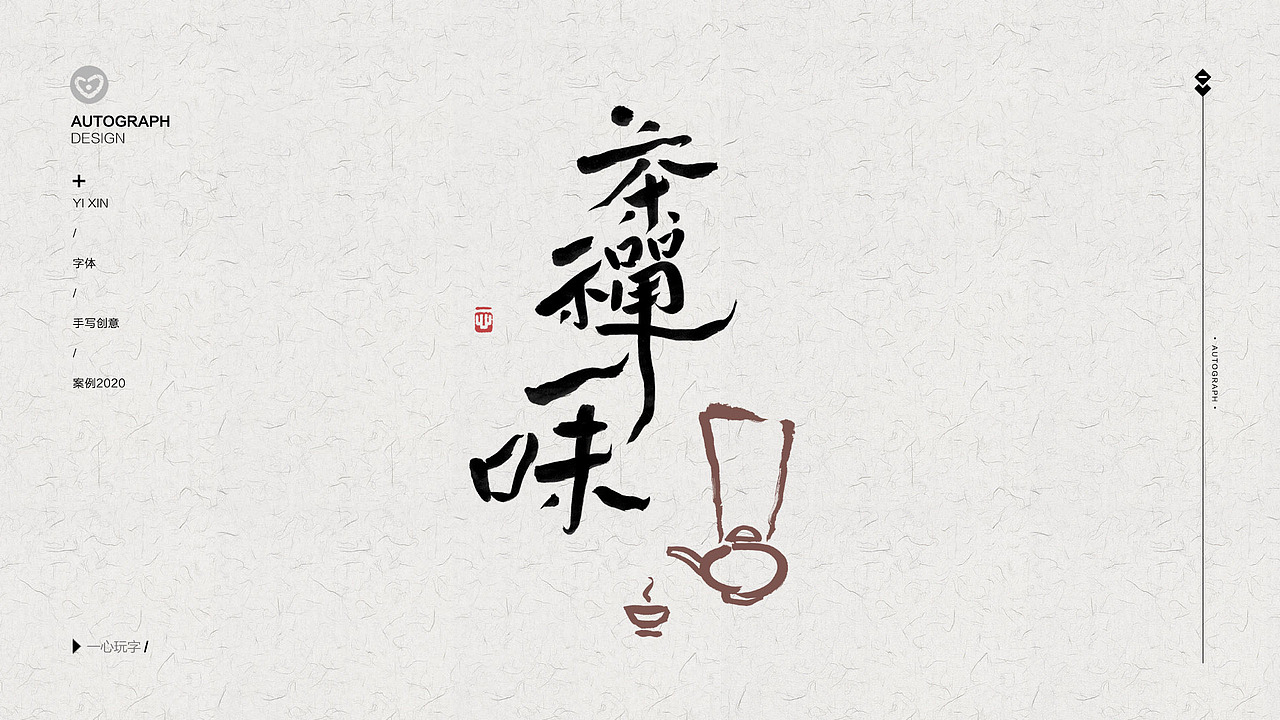 AUTOGRAPH
DESIGN
+
YI XIN
/
字体
/
手写创意
/
案例2020
茶禪一味
一心玩字 /
• AUTOGRAPH •